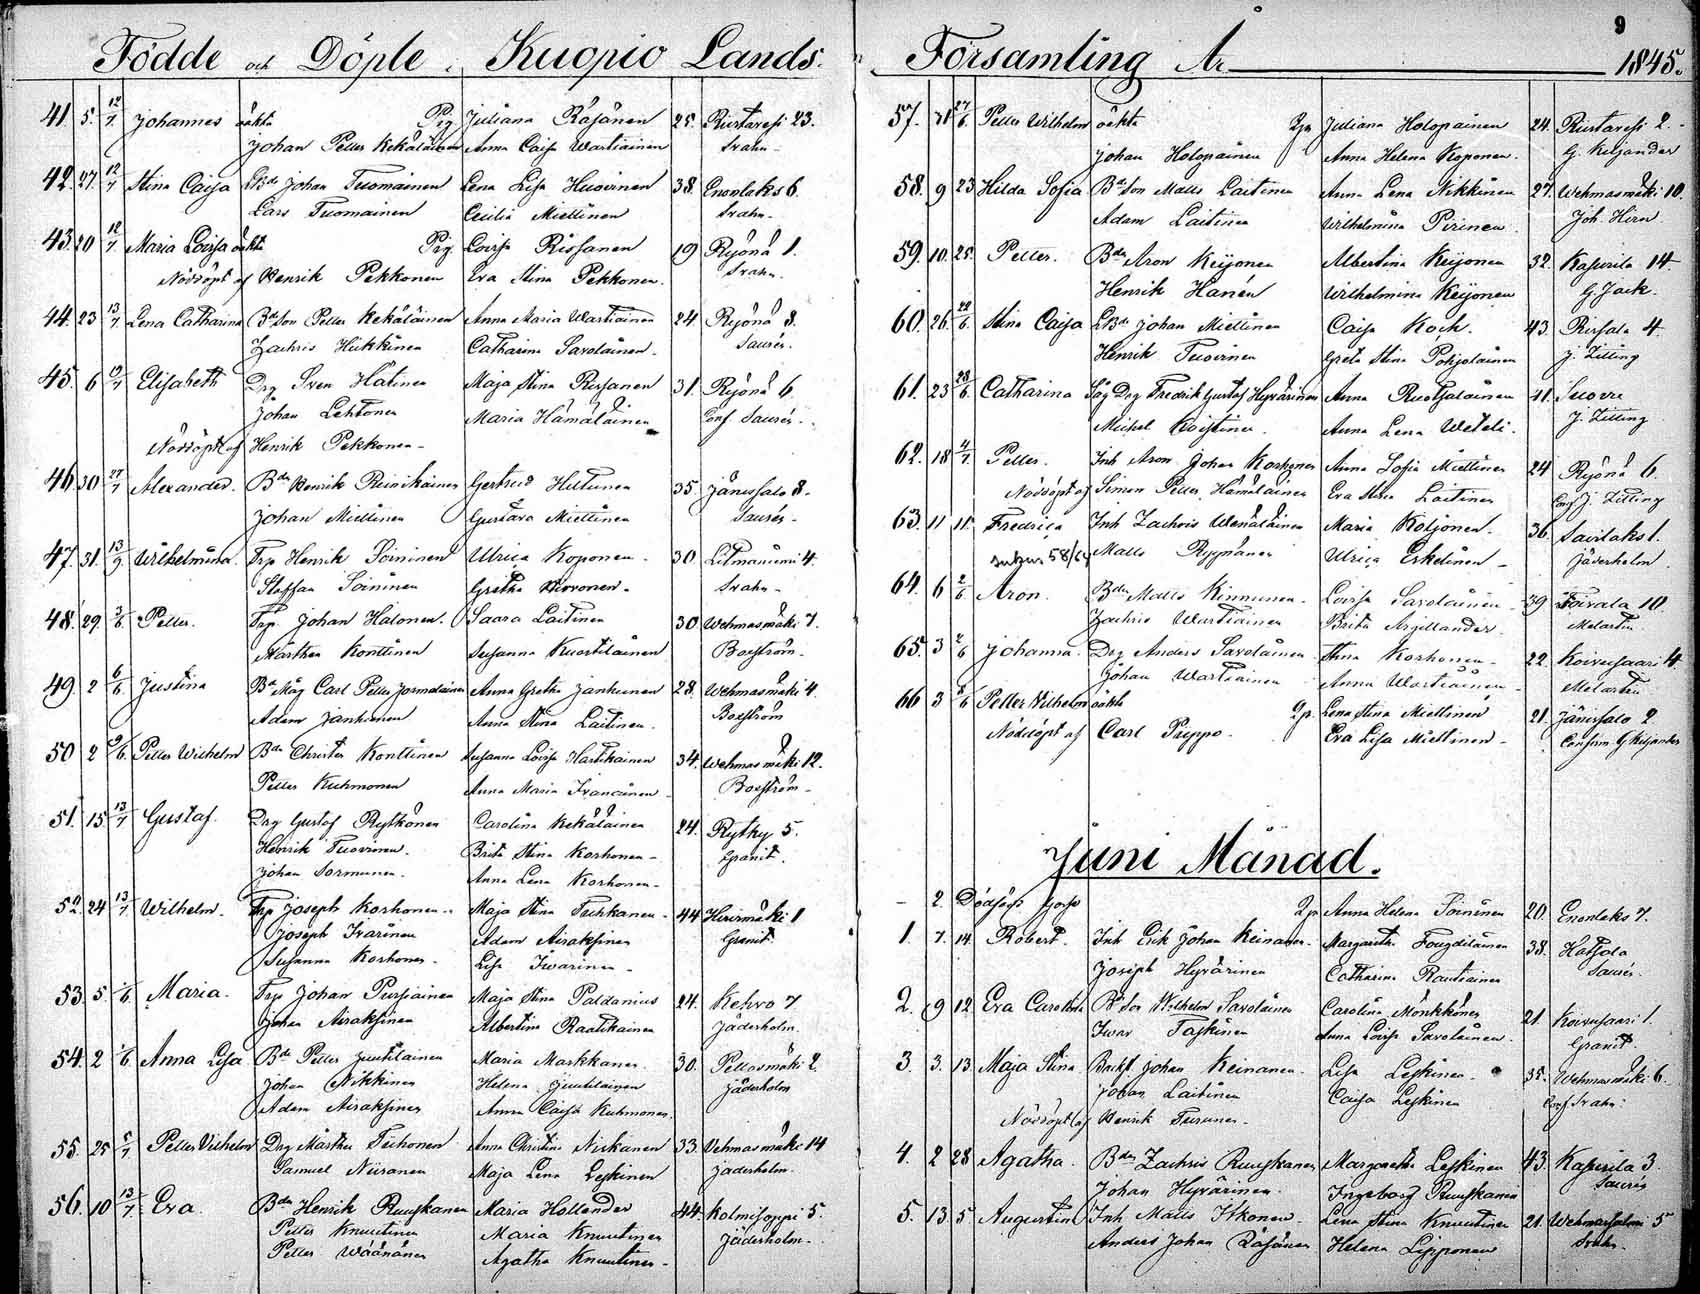 9
Födde och Döpte i Kuopio Lands. Församling År 1845.
41. 5. 12/7 Johannes oäkta Pig Juliana Räsänen 25. Riistavesi 23.
Johan Petter Kekäläinen Anna Caisa Wartiainen Svahn.
42. 27. 12/7 Stina Caisa LBd Johan Tuomainen Lena Lisa Huovinen 38. Enonlaks 6.
Lars Tuomainen Cecilia Miettinen Svahn.
43. 20 12/7 Maria Lovisa oäkta Pig. Lovisa Rissanen 19 Ryönä 1.
Nöddöpt af Henrik Pekkonen Eva Stina Pekkonen. Svahn.
44. 23 13/7 Lena Catharina Bd Son Petter Kekäläinen Anna Maria Wartiainen 24 Ryönä 8.
Zachris Hiikkinen Catharina Savolainen. Saurén.
45. 6 Elisabeth Drg Sven Hätinen Maja Stina Rissanen 31. Ryönä 6
Johan Lehtonen Maria Hämäläinen Conf Saurén.
Nöddöpt af Henrik Pekkonen
46. 30 27/7 Alexander. Bd Henrik Reinikainen Gertrud Hutunen 35. Jänissalo 8.
Johan Miettinen Gustava Miettinen Saurén.
47. 31. Wilhelmina. Trp Henrik Soininen Ulrica Koponen 30 Litmaniemi 4.
Staffan Soininen Gretha Hirvonen. Svahn.
48. 29. 3/6 Petter. Trp. Johan Halonen. Saara Laitinen 30 Wehmasmäki 7.
Märtha Konttinen Susanna Kuostilainen Boxström.
49. 2 6/6 Justina Bd Måg Carl Petter Jormalainen Anna Greta Janhunen 28. Wehmasmäki 4.
Adam Janhunen Anna Stina Laitinen. Boxström
50 2 Petter Wilhelm Bd Christer Konttinen Susanna Lovisa Hartikainen 34. Wehmasmäki 12.
Petter Kuhmonen Anna Maria Ivanainen Boxström
51. 15 13/7 Gustaf. Drg Gustaf Rytkönen Carolina Kekäläinen 24. Rytky 5.
Henrik Tuovinen. Brita Stina Korhonen Granit.
Johan Sormunen. Anna Lena Korhonen
52. 24 13/7 Wilhelm. Trp Joseph Korhonen Maja Stina Tuhkanen 44 Hirvimäki 1
Joseph Ivarinen Adam Airaksinen Granit
Susanna Korhonen. Lisa Iwarinen
53. 5. Maria. Trp Johan Pursiainen Maja Stina Paldanius 24. Kehvo 7
Johan Airaksinen Albertina Raatikainen Jäderholm.
54. 2 Anna Lisa Bd Petter Juutilainen Maria Markkanen 30. Pellosmäki 2.
Johan Nikkinen Helena Juutilainen Jäderholm
Adam Airaksinen Anna Caisa Kuhmonen.
55. 25 Petter Vilhelm Drg Mårthen Tuhonen Anna Christina Niskanen 33. Vehmasmäki 14
Samuel Niiranen Maja Lena Leskinen Jäderholm.
56. 10 13/7 Eva. Bd Henrik Ruuskanen Maria Hollender 44. Kolmisoppi 5.
Petter Knuutinen Maria Knuutinen Jäderholm.
Petter Wäänänen Agatha Knuutinen
57. 27/6 Petter Wilhelm oäkta Juliana Holopainen 24. Riistavesi 2.
Johan Holopainen Anna Helena Koponen. G. Kiljander
58. 9 23 Hilda Sofia Bd Son Matts Laitinen Anna Lena Nikkinen 27. Wehmasmäki 10.
Adam Laitinen Wilhelmina Pirinen. Joh. Hirn
59. 10. 25. Petter. Bd Aron Keijonen Albertina Keijonen 32. Kasurila 14.
Henrik Hanén Wilhelmina Keijonen G. Jack.
60. 26. 28/6 Stina Caisa LBd Johan Miettinen Caisa Koch. 43. Rissala 4
Henrik Tuovinen Greta Stina Pohjolainen J. Zitting
61. 23 28/6 Catharina Säg Drg Fredrik Gustaf Hyvärinen Anna Ruotsalainen 41. Suovu
Michel Koistinen. Anna Lena Weteli. J. Zitting
62. 18 4/7 Petter. Inh Aron Johan Korhonen Anna Sofia Miettinen 24 Ryönä 6.
Nöddöpt af Simon Petter Hämäläinen Eva Stina Laitinen Conf J. Zitting
63. 11 11. Fredrica Inh Zachris Wänäläinen Maria Koljonen. 36. Savilaks 1.
58/64 Matts Ryynänen Ulrica Eskelinen Jäderholm.
64. 6 2/6 Aron. Bd Matts Kinnunen Lovisa Savolainen 39 Toivala 10.
Zachris Wartiainen Brita Argillander. Melartin
65. 3 Johanna. Drg Anders Savolainen Stina Korhonen 22. Koivusaari 4.
Johan Wartiainen Anna Wartiainen Melartin
66 3 Petter Wilhelm oäkta Lena Stina Miettinen 21. Jänissalo 2
Nöddöpt af Carl Puppo Eva Lisa Miettinen Confirm. G Kiljander
Juni Månad.
2 Dödfödt gosse Anna Helena Soininen 20. Enonlaks 7.
1. 7. 14. Robert. Inh Erik Johan Keinänen. Margareta Fougdilainen 38. Hatsala
Joseph Hyvärinen Catharina Rautiainen Saurén.
2. 9 12 Eva Carolina Bd Son Wilhelm Savolainen Carolina Mönkkönen 21. Koivusaari 1.
Ivar Taskinen Anna Lovisa Savolainen. Granit.
3. 3. 13. Maja Stina Johan Keinanen. Lisa Leskinen. 35. Wehmasmäki 6.
Johan Laitinen Caisa Leskinen Conf Svahn.
Nöddöpt af Henrik Turunen.
4. 2 28 Agatha. Bd Zachris Ruuskanen Margareta Leskinen 43. Kasurila 3.
Johan Hyvärinen. Ingeborg Ruuskanen Saurén
5. 13. 5 Augustin Inh Matts Itkonen. Lena Stina Knuutinen 21. Wehmersalmi 5
Anders Johan Räsänen Helena Lipponen Svahn.